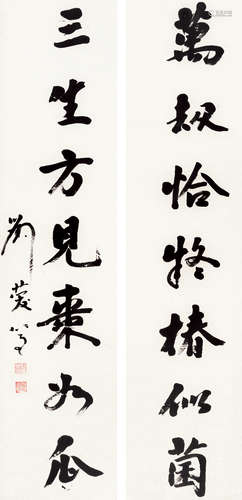 萬劫恰將椿似菌
三生方見棗如瓜
劉